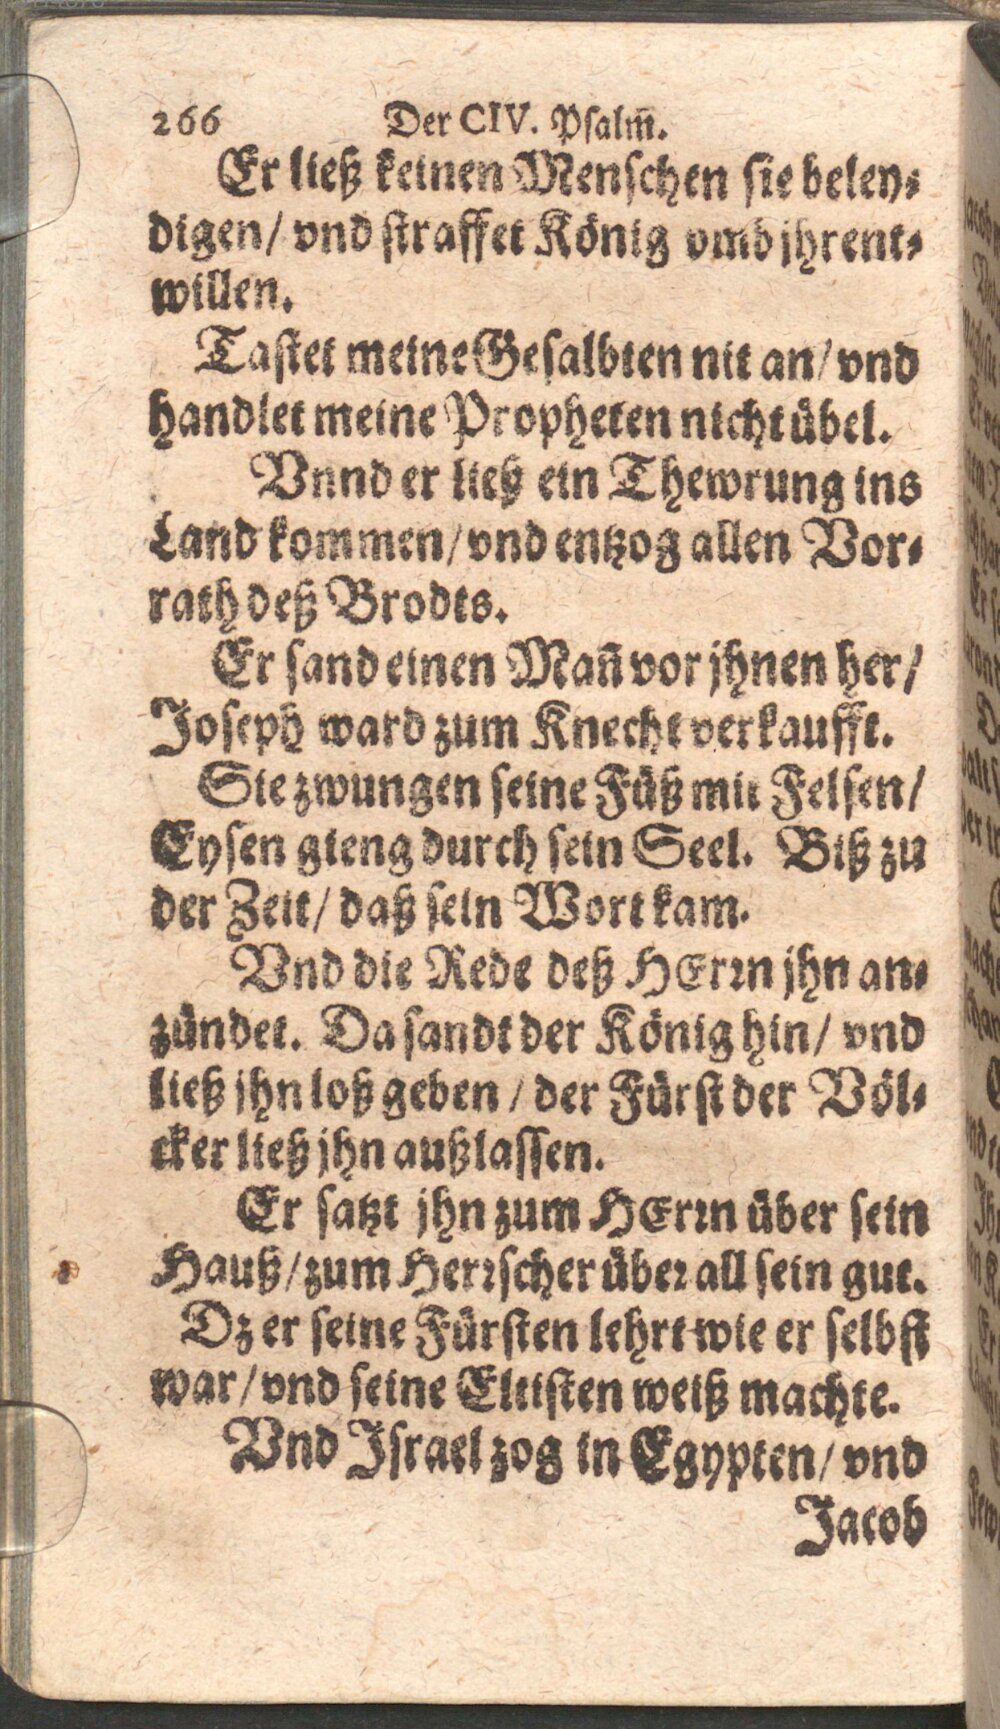 266 Der CIV. Psalm̃.
Er ließ keinen Menschen sie beley⸗
digen/ vnd straffet König vmb jhrent⸗
willen.
Tastet meine Gesalbten nit an/ vnd
handlet meine Propheten nicht übel.
Vnnd er ließ ein Thewrung ins
Land kommen/ vnd entzog allen Vor⸗
rath deß Brodts.
Er sand einen Mañ vor jhnen her/
Joseph ward zum Knecht verkaufft.
Sie zwungen seine Füß mit Felsen/
Eysen gieng durch sein Seel. Biß zu
der Zeit/ daß sein Wort kam.
Vnd die Rede deß HErꝛn jhn an⸗
zündet. Da sandt der König hin/ vnd
ließ jhn loß geben / der Fürst der Völ⸗
cker ließ jhn außlassen.
Er satzt jhn zum HErꝛn über sein
Hauß/ zum Herꝛscher übeꝛ all sein gut.
Dz er seine Fürsten lehrt wie er selbst
war/ vnd seine Eltisten weiß machte.
Vnd Israel zog in Egypten/ vnd
Jacob